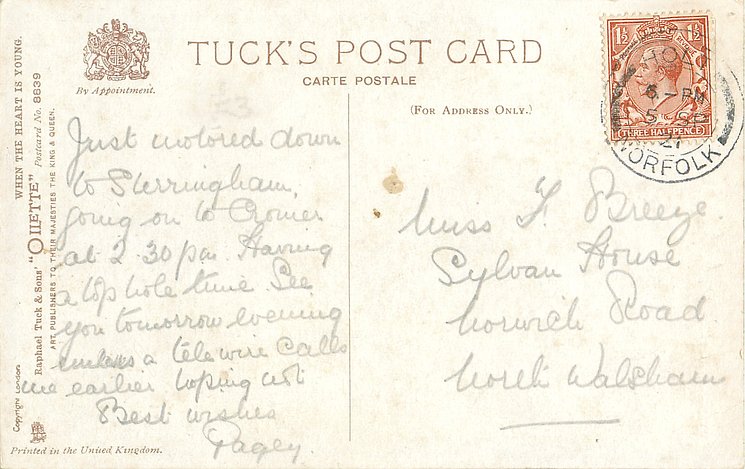 TUCK'S POST CARD
CARTE POSTALE
By Appointment.
(FOR ADDRESS ONLY.)
1½ 1½
THREE HALFPENCE
HOLT
6 - PM
5 SP
21
NORFOLK
WHEN THE HEART IS YOUNG.
Raphael Tuck & Sons' "OILETTE" Postcard No. 8839
ART PUBLISHERS TO THEIR MAJESTIES THE KING & QUEEN.
Copyright London
Just motored down
to Sherringham,
going on to Cromer
at 2.30 pm. Having
a top hole time. See
you tomorrow evening
unless a tele wire calls
me earlier hoping not
Best wishes
Pagey.
Miss F. Breeze.
Sylvan House
Norwich Road
North Walsham
Printed in the United Kingdom.